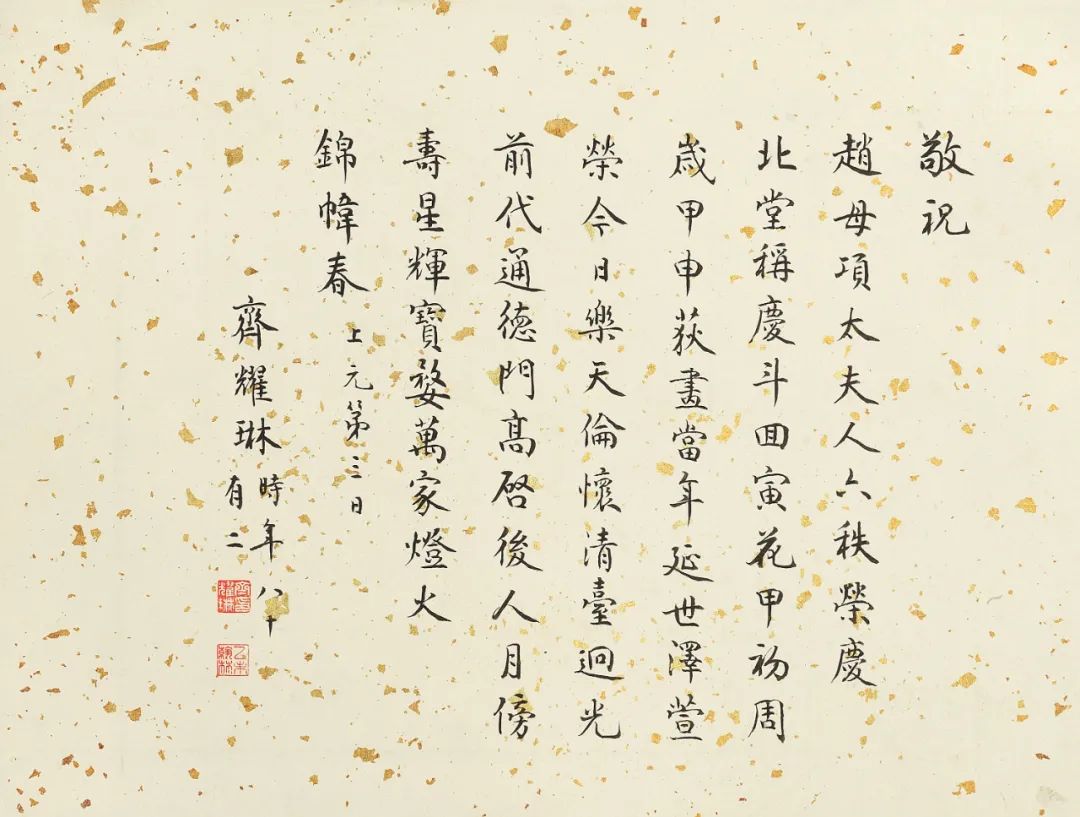 敬祝
趙母項太夫人六秩榮慶
北堂稱慶斗回寅花甲初周
歲甲申荻畫當年延世澤萱
榮今日樂天倫懷清臺迥光
前代通德門高啓後人月傍
壽星輝寶婺萬家燈火
錦幃春
上元第三日
齊耀琳時年八十
有二